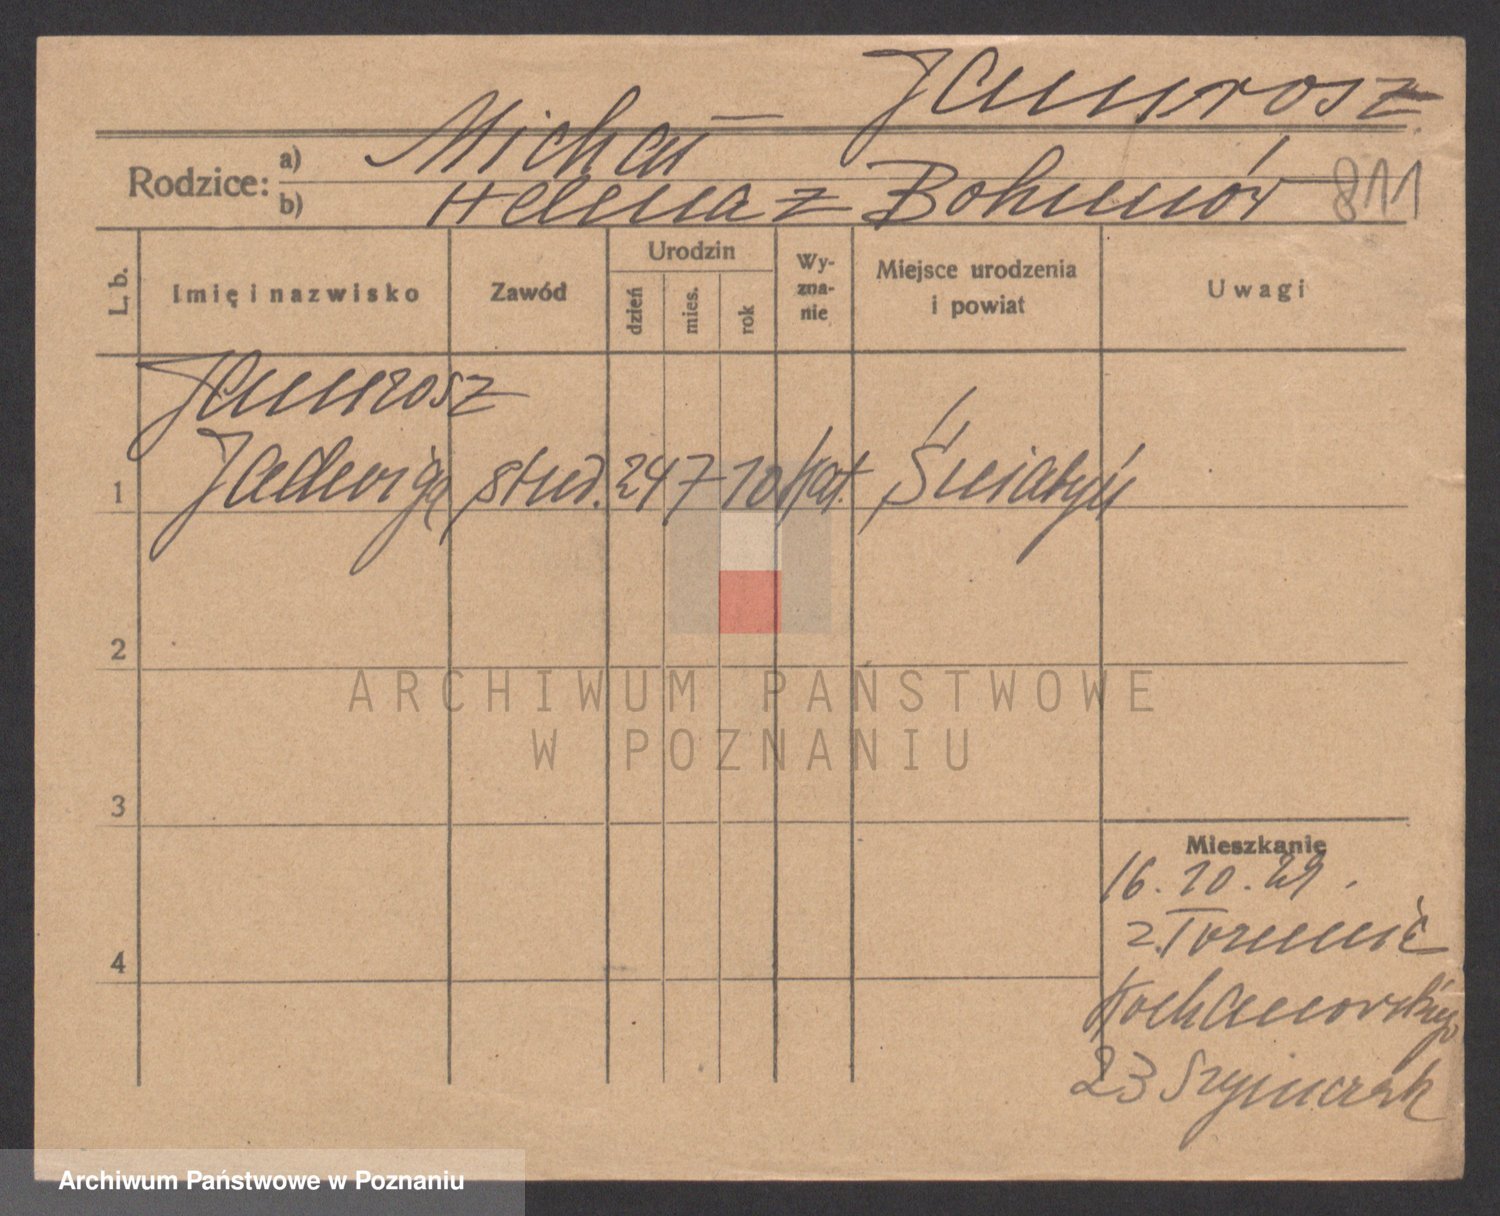 Jamrosz
Rodzice: a) Michał
b) Helena z Bohunów 811
L. b.
Imię i nazwisko
Zawód
Urodzin
dzień
mies.
rok
Wy-
zna-
nie
Miejsce urodzenia
i powiat
Uwagi
Jamrosz
1 Jadwiga stud. 24 7 10 kat. Śniatyń
2
3
4
Mieszkanie
16. 10. 29.
z
Kochanowskiego
23 Szymczak
ARCHIWUM PAŃSTWOWE
W POZNANIU
Archiwum Państwowe w Poznaniu